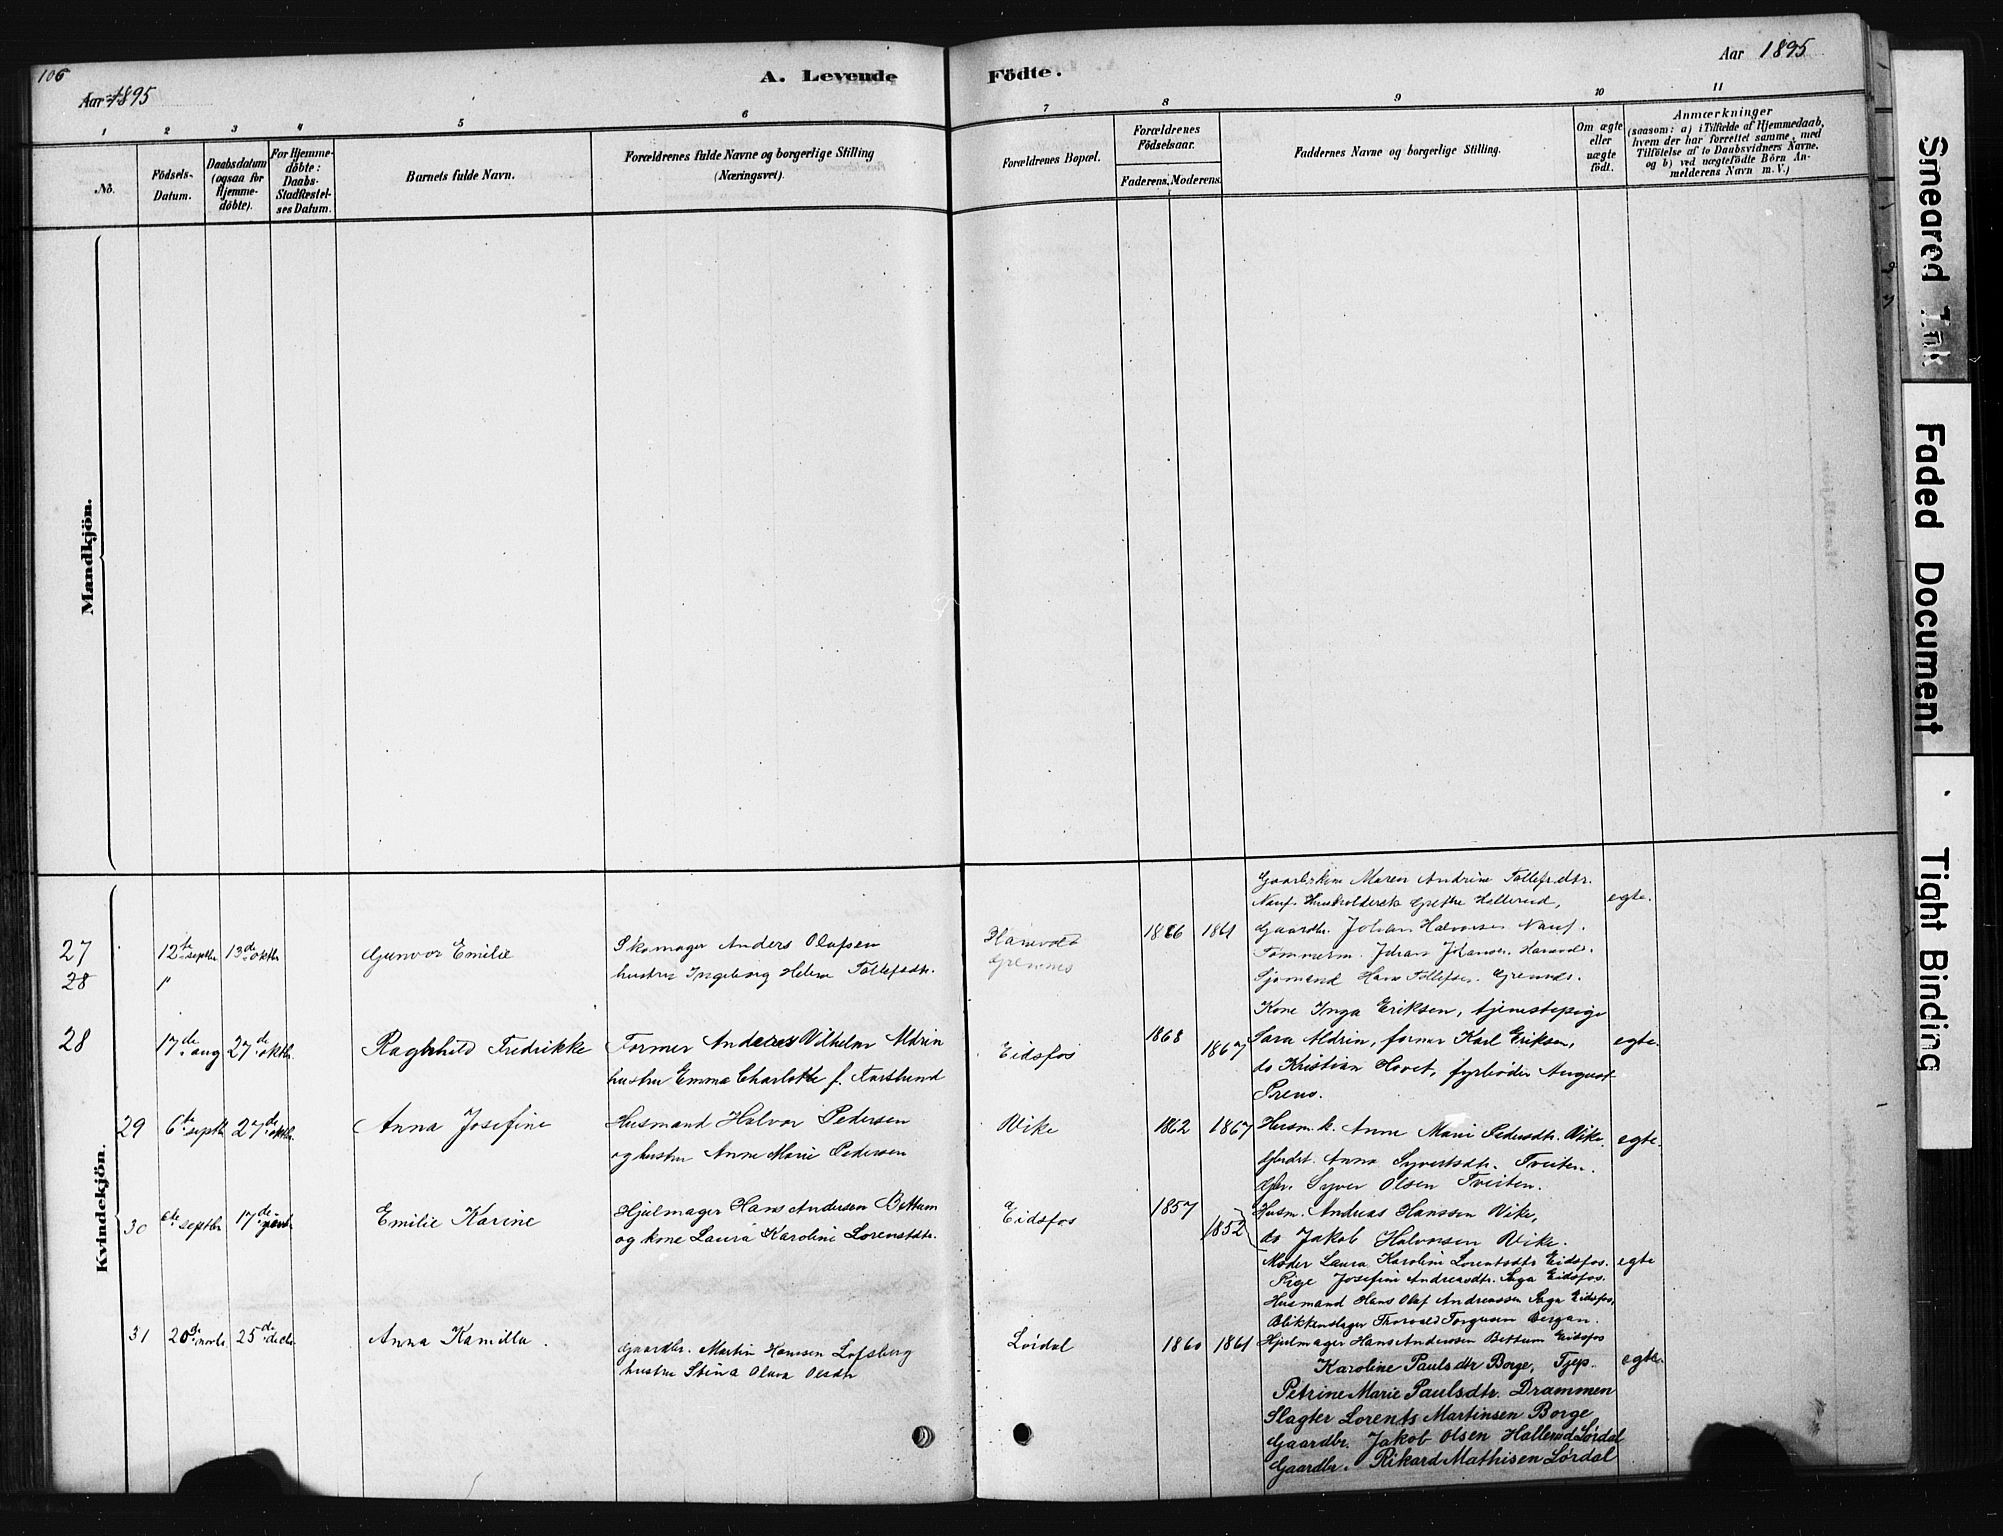 106
Aar 1895
A. Levende Födte.
Aar 1895
1 2 3 4 5 6 7 8 9 10 11
No.
Födsels-
Datum.
Daabsdatum
(ogsaa for
Hjemme-
döbte).
For Hjemme-
döbte:
Daabs-
Stadfæstel-
ses Datum.
Barnets fulde Navn.
Forældrenes fulde Navne og borgerlige Stilling
(Næringsvei).
Forældrenes Bopæl.
Forældrenes
Födselsaar.
Faderens. Moderens.
Faddernes Navne og borgerlige Stilling.
Om ægte
eller
uægte
födt.
Anmærkninger
(saasom: a) i Tilfælde af Hjemmedaab,
hvem der har forrettet samme, med
Tilföielse af to Daabsvidners Navne.
og b) ved uægtefödte Börn An-
melderens Navn m. V.)
Mandkjön.
Kvindekjön.
27 12te septbr 13de oktbr Gunvor Emilie
Skomager Anders Olafsen
hustru Ingeborg Helene Tollefsdtr.
Hanevold
Grennes
1866 1861
Maren Andrine Tollefsdtr.
Grethe Hallerud,
Gaardbr. Johan Halvorsen
Tommerm. Johan Johansen
Sjømand Hans Tollefsen
egte.
28 "
28 17de aug 27de oktbr. Raghnhild Fredrikke
Former Anders Vilhelm Aldrin
hustru Emma Charlotte f. Forslund
Eidsfos
1868 1867
Kone Inga Eriksen, tjenestepige
Sara Aldrin, former Karl Eriksen,
do Kristian Hovet, fyrbøder August
egte.
29 6te septbr 27de oktbr. Anna Josefine
Husmand Halvor Pedersen
og hustru Anne Marie Pedersen
Vike
1862 1867
Husm. k. Anne Marie Pedersdtr. Vike.
Gbrdtr. Anna Syvertsdtr. Tveiten.
Gbr. Syver Olsen Tveiten.
Husm. Andreas Hanssen Vike,
do Jakob Halvorsen Vike.
egte.
30 6te septbr 17de Emilie Karine
Hjulmager Hans Andersen Bettum
og kone Laura Karoline Lorentsdtr.
Eidsfos
1857 1852
Moder Laura Karoline Lorentsdtr Eidsfos.
Pige Josefine Andreasdtr. Saga Eidsfos.
Husmand Hans Olaf Andreassen Saga Eidsfos,
Blikkenslager Thorvald Torgusen Bergan.
Hjulmager Hans Anderssen Bettum Eidsfos
egte
31 20de novbr 25de decbr Anna Kamilla.
Gaardbr. Martin Hansen Lofsberg
hustru Stina Olava Olsdtr
Lørdal
1860 1861
Karoline Paulsdtr Borge, Tjep.
Petrine Marie Paulsdtr. Drammen
Slagter Lorents Martinsen Borge
Gaardbr. Jakob Olsen Hallerud Lørdal
Gaardbr. Rikard Mathisen Lørdal
egte.
Smeared Ink
Faded Document
Tight Binding